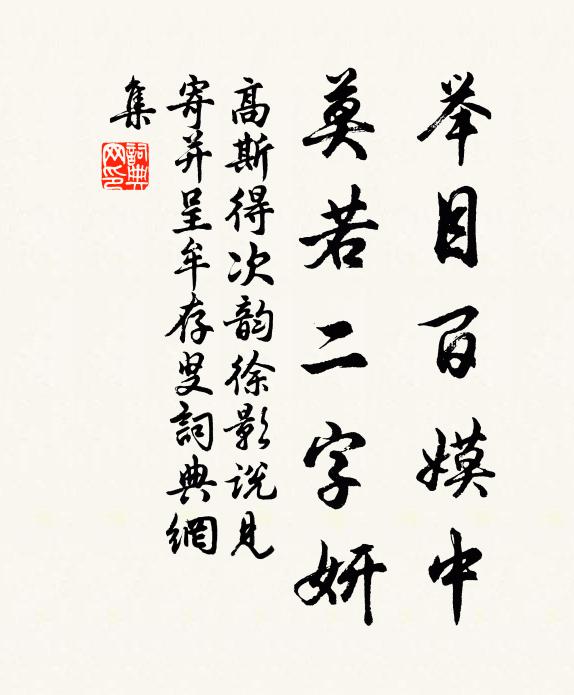 举目百嫫中
莫若二字妍
高斯得次韵徐影说见
寄并呈牟存叟詞典網
集
詞典网印